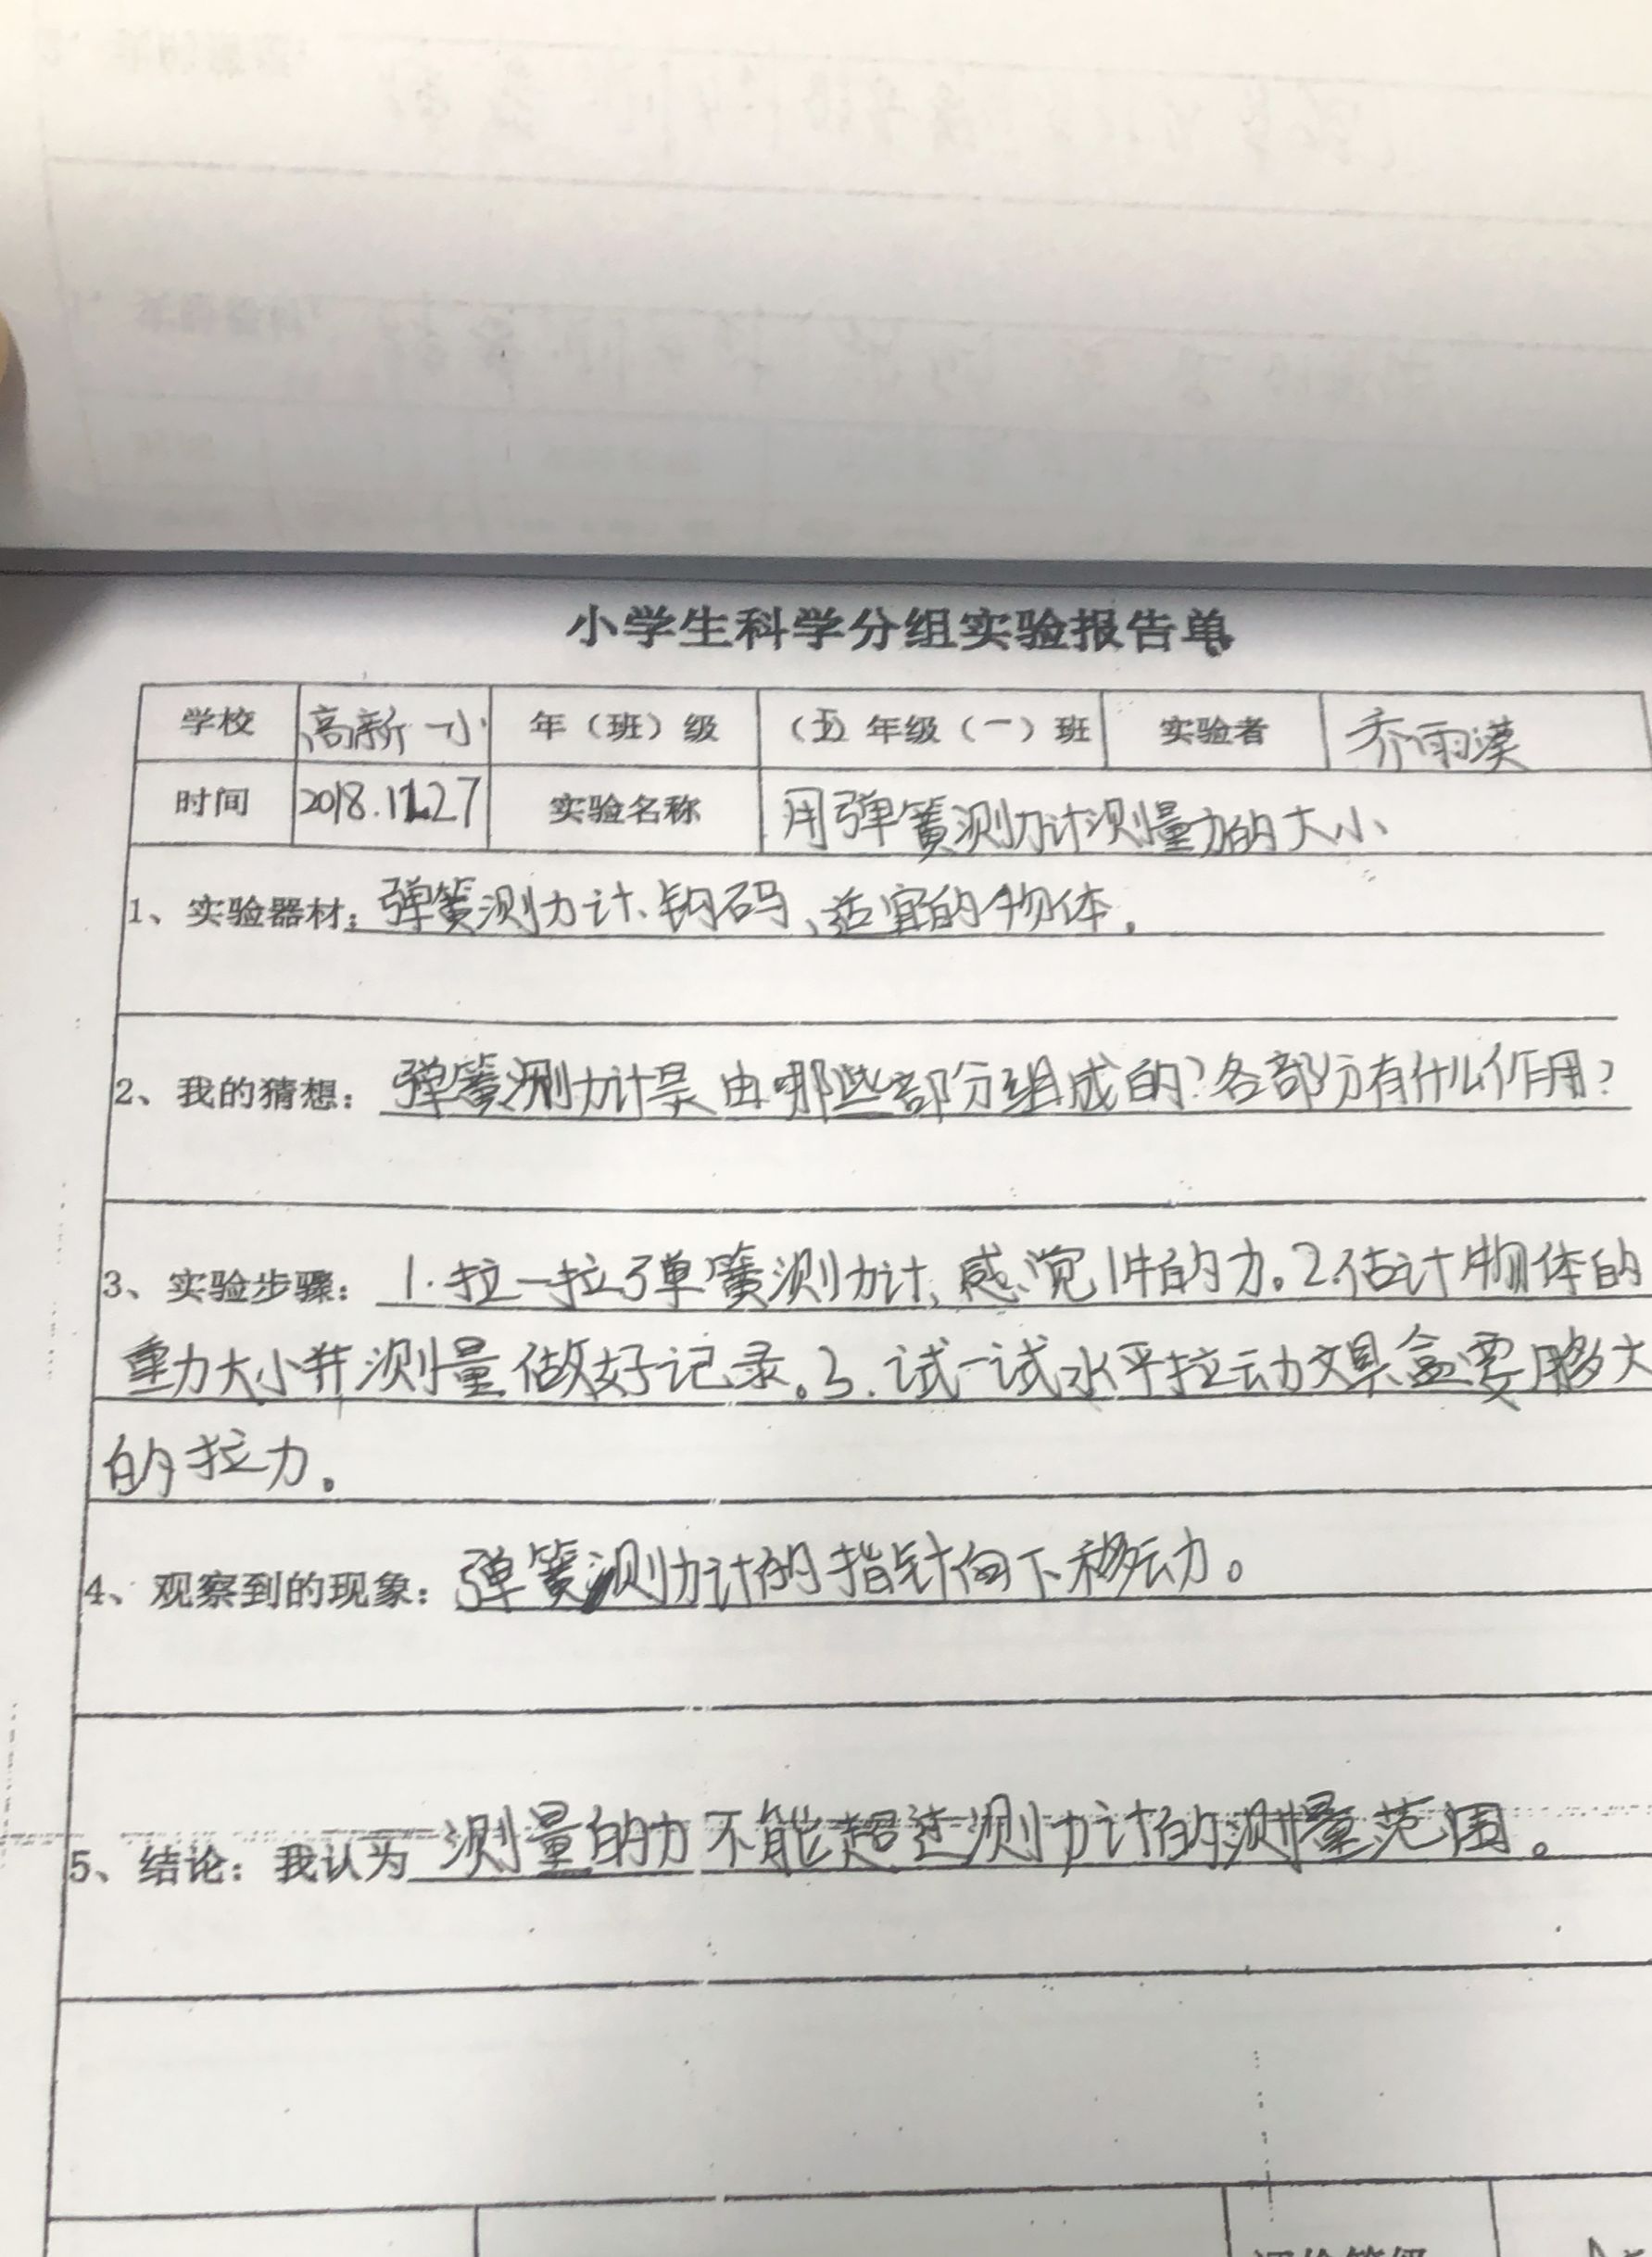 小学生科学分组实验报告单
学校 高新一小 年（班）级 （五）年级（一）班 实验者 乔雨漠
时间 2018.11.27 实验名称 用弹簧测力计测量力的大小
1、实验器材：弹簧测力计、钩码、适宜的物体。
2、我的猜想：弹簧测力计是由哪些部分组成的？各部分有什么作用？
3、实验步骤：1.拉一拉弹簧测力计，感觉1牛的力。2.估计物体的
重力大小并测量做好记录。3.试一试水平拉动文具盒要用多大
的拉力。
4、观察到的现象：弹簧测力计的指针向下移动。
5、结论：我认为 测量的力不能超过测力计的测量范围。